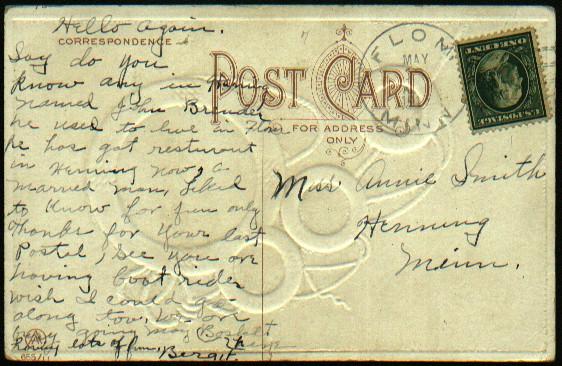 Hello again.
CORRESPONDENCE
Say do you
know any in Henning
named John Bruder
he used to live in Flom
he has got resturont
in Henning now, a
married man, Liked
to know for fun only
thanks for your last
Postel, see you are
having boat rides
wish I could go
along too. We are
going May Basket
having lots of fun, Bergit.
POST CARD
FOR ADDRESS
ONLY
FLOM
MAY
MINN
U.S. POSTAGE
ONE CENT
Miss Annie Smith
Henning
Minn.